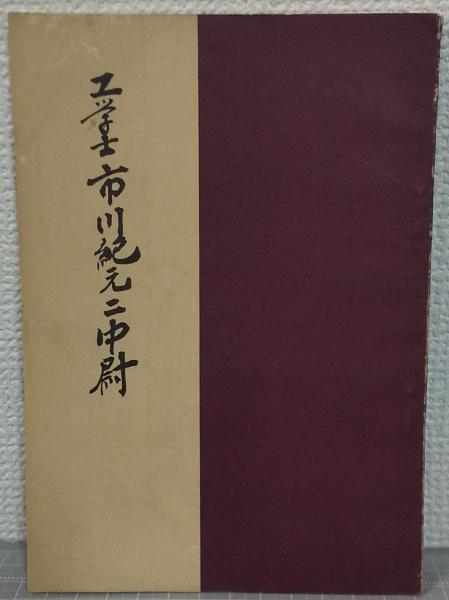 工学士市川紀元二中尉